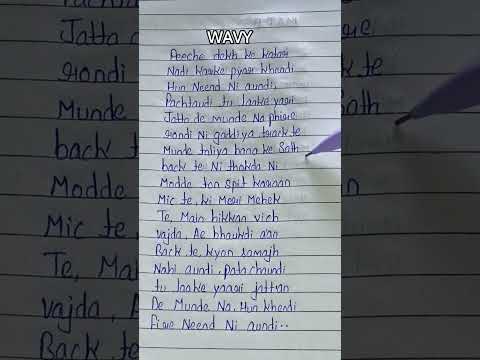 WAVY
Peeche dekh ke katasi
Nadi karke pyasi khendi
Hun Neend Ni aundi,
Pachtaudi tu laake yaari
Jatta de munde Na phire
Gondi Ni gaddiya track te
Munde toliya bana ke Sath
back te Ni thokda Ni
Modde ton spit karaan
Mic te, ki Meri Mehek
Te, Main hikkan vich
vajda, Ae bhaukdi aan
Back te, kyon samajh
Nahi aundi, Pata chaundi
tu laake yaari jattan
De Munde Na, Hun khendi
Fire Neend Ni aundi..